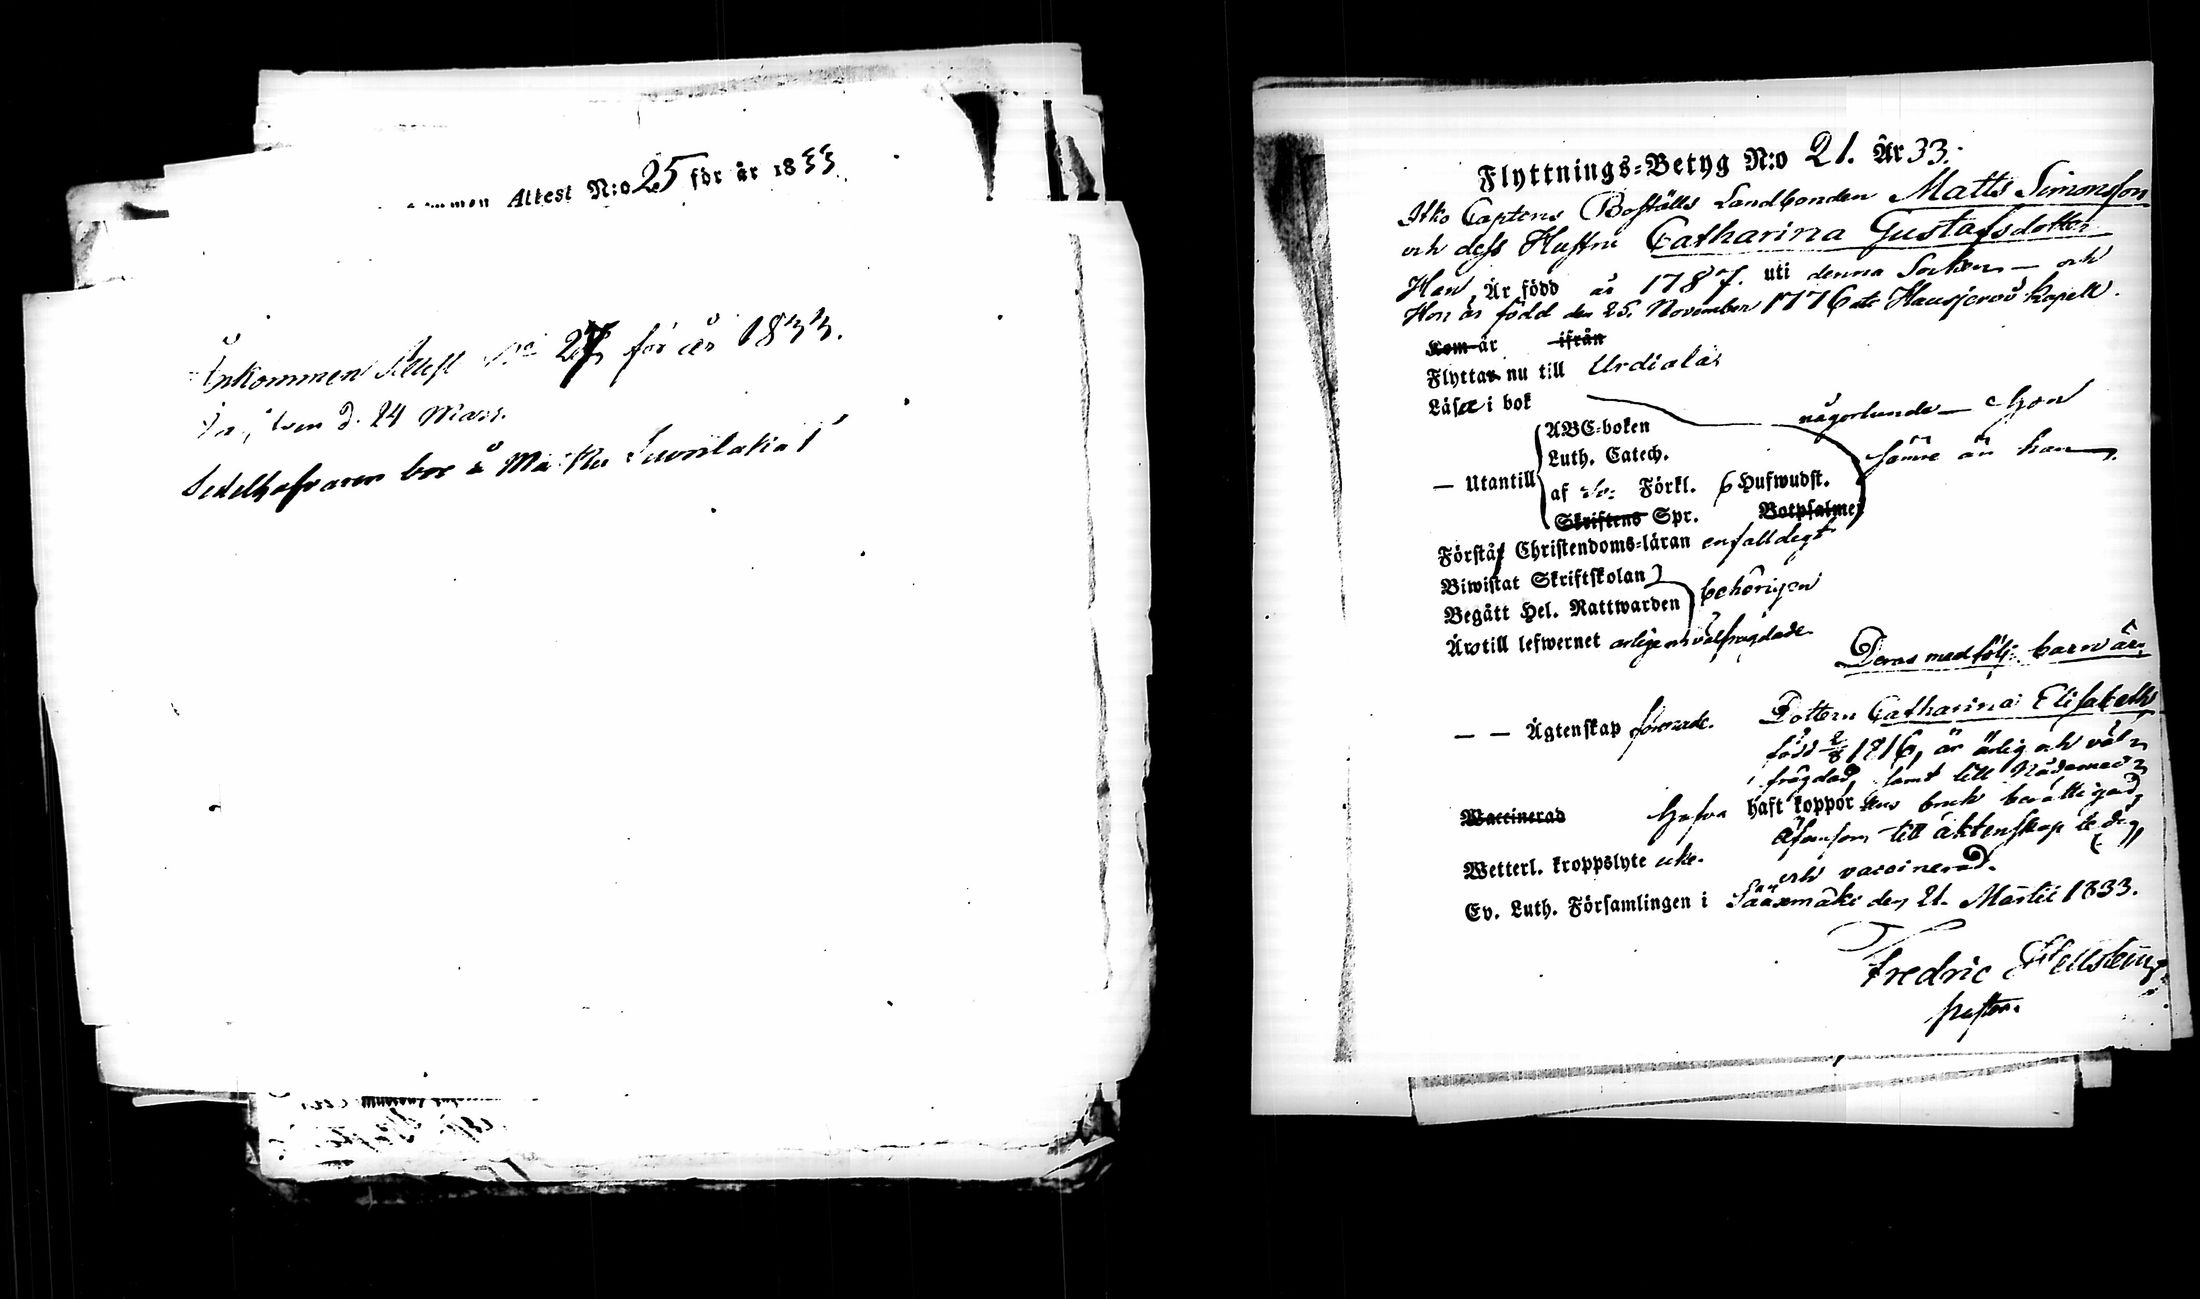 Attest N:o 25 för år 1833
Ankommen Attest No 27 för år 1833.
d. 24 Mars.
Sedelhafvaren bor å
Flyttnings-Betyg N:o 21. År 33.
Itko Captens Boställs Landbonden Matts Simonsson
och dess Hustru Catharina Gustafsdotter
Han Är född år 1787. uti denna Socken — och
Hon är född den 25. November 1776 uti Hausjerwi Kapell.
Kom år ifrån
Flyttar nu till Urdiala
Läsa i bok någorlunda — Hon
ABC-boken
Luth. Catech. sämre än han
— Utantill
af Förkl. 6 Hufwudst.
Skriftens Spr. Botpsalmer
Förstå Christendoms-läran enfalldigt
Biwistat Skriftskolan
Begått Hel. Nattwarden behörigen
Äro till lefwernet ärlige och välfrägdade
Deras medfölj. barn är:
— — Ägtenskap förenade. Dottern Catharina Elisabeth
född 2/8 1816, är ärlig och väl-
frägdad, samt till Nådemed-
Waccinerad Hafva haft koppor lens bruk berättigad,
äfvensom till äktenskap ledig,
Wetterl. kroppslyte icke.
och vaccinerad.
Ev. Luth. Församlingen i Sääxmäki den 21. Martii 1833.
Fredric
pastor.